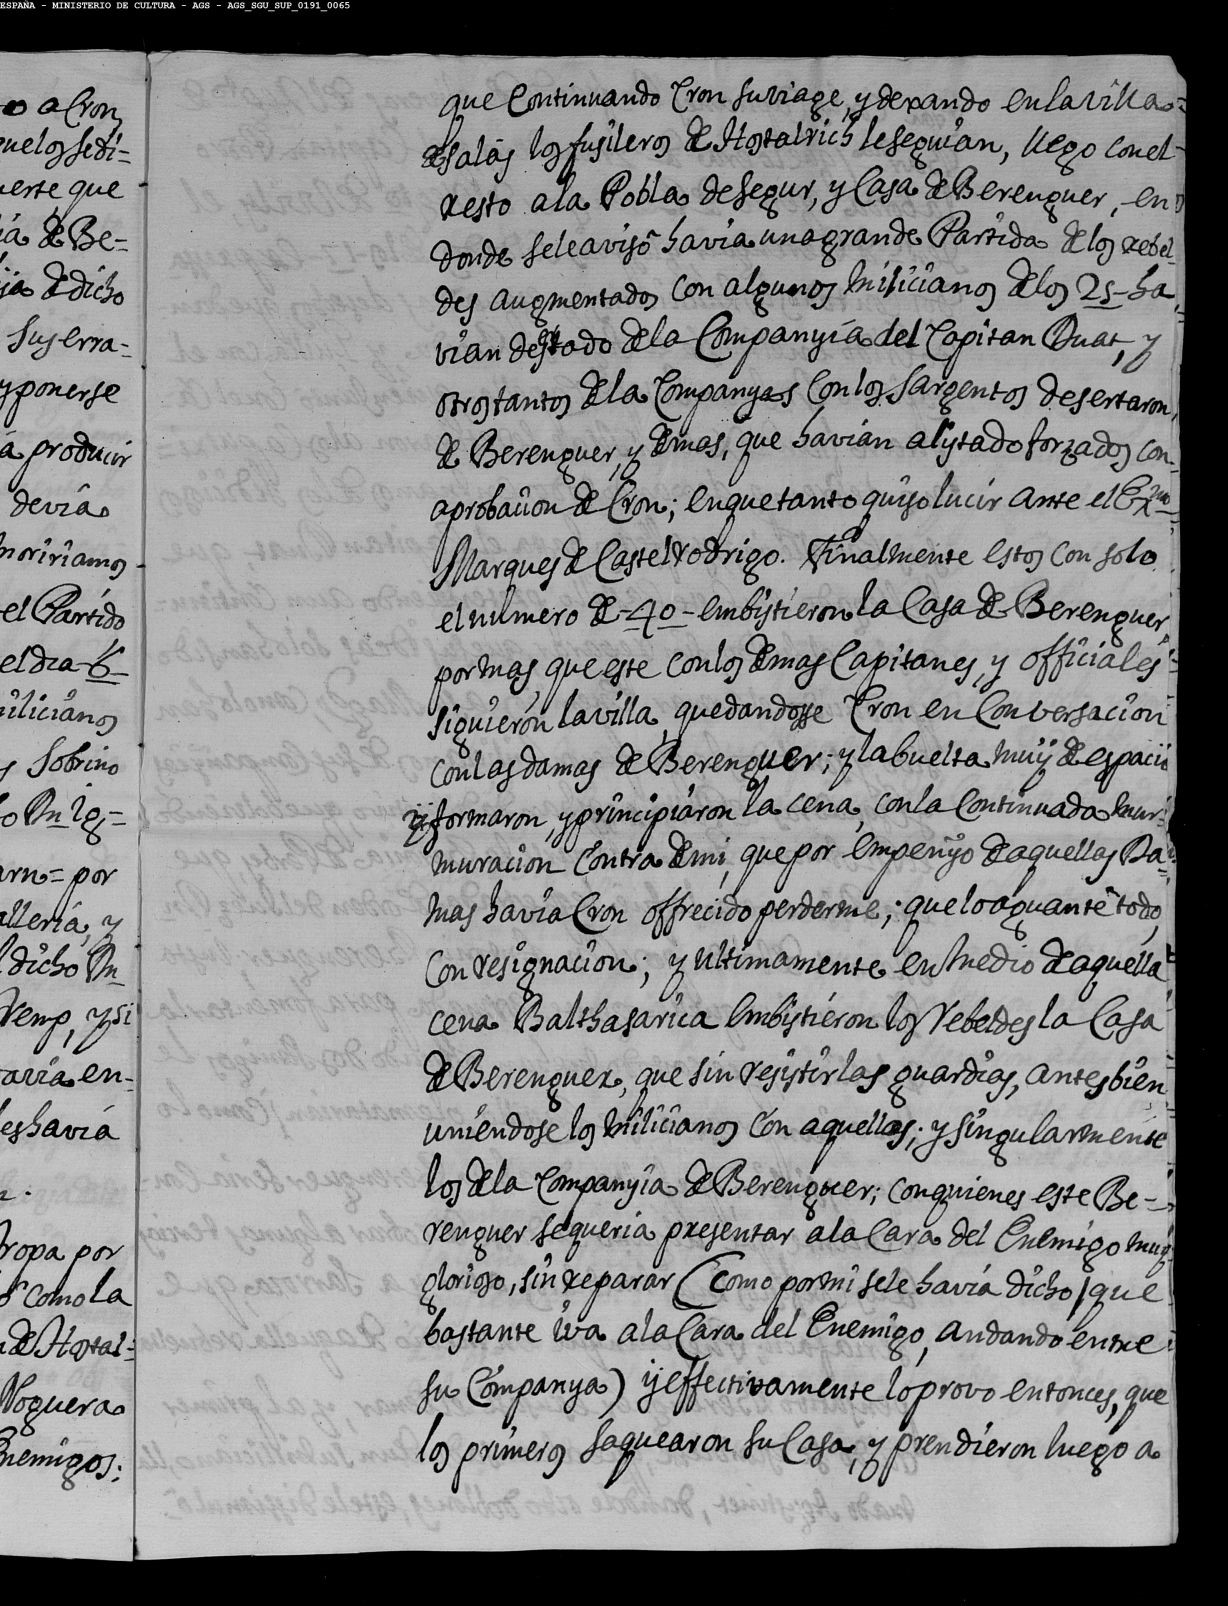 ESPAÑA - MINISTERIO DE CULTURA - AGS - AGS_SGU_SUP_0191_0065
a Cron
que los sedi=
uerte que
ia de Be=
de dicho
sus erra=
y ponerse
á producir
devia
moririamos
el Partido
el dia 6
miliciános
Sobrino
por
alleria, y
dicho
Tremp, y si
en-
les havia
tropa por
como la
de Hostal=
Noguera
Enemigos;
que Continuando Cron su viage, y dexando en la villa
desalás los fusileros de Hostalrich le seguian, llego con el
resto a la Pobla de segur, y Casa de Berenguer, en
donde se le avisô havia una grande Partida de los rebel-
des augmentados con algunos Milicianos de los 25- ha=
vian desertado de la Companyia del Capitan Buat, y
otros tantos de la Companya Con los sargentos desertaron,
de Berenguer, y demas, que havian alistado forzados con
aprobacion de Cron; en que tanto quiso lucir ante el Exmo
Marques de Castelrodrigo. Finalmente estos con solo
el numero de -40- embistieron la Casa de Berenguer
por mas que este con los demas Capitanes, y officiales
siguieron la villa, quedandosse Cron en Conversacion
con las damas de Berenguer; y la buelta muÿ de espacio
formaron, y principiaron la cena, con la Continuada mur-
muracion Contra de mi, que por empenÿo de aquellas Da=
mas havia Cron offrecido perderme; que lo aguantê todo,
con resignacion; y ultimamente en medio de aquella
cena Balthasarica embistieron los Rebeldes la Casa
de Berenguer, que sin resistir las guardias, antes bien
uniendose los Milicianos con aquellos; y singularmente
los de la Companyia de Berenguer; con quienes este Be-
renguer se queria presentar a la Cara del Enemigo muy
glorioso, sin reparar (como por mi se le havia dicho) que
bastante iva a la Cara del Enemigo, andando entre
su Companya) ÿ effectivamente lo provo entonces, que
los primeros saquearon su Casa, y prendieron luego a